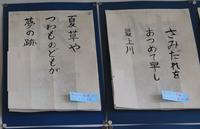 さみだれを
あつめて早し
最上川
夏草や
つわものどもが
夢の跡